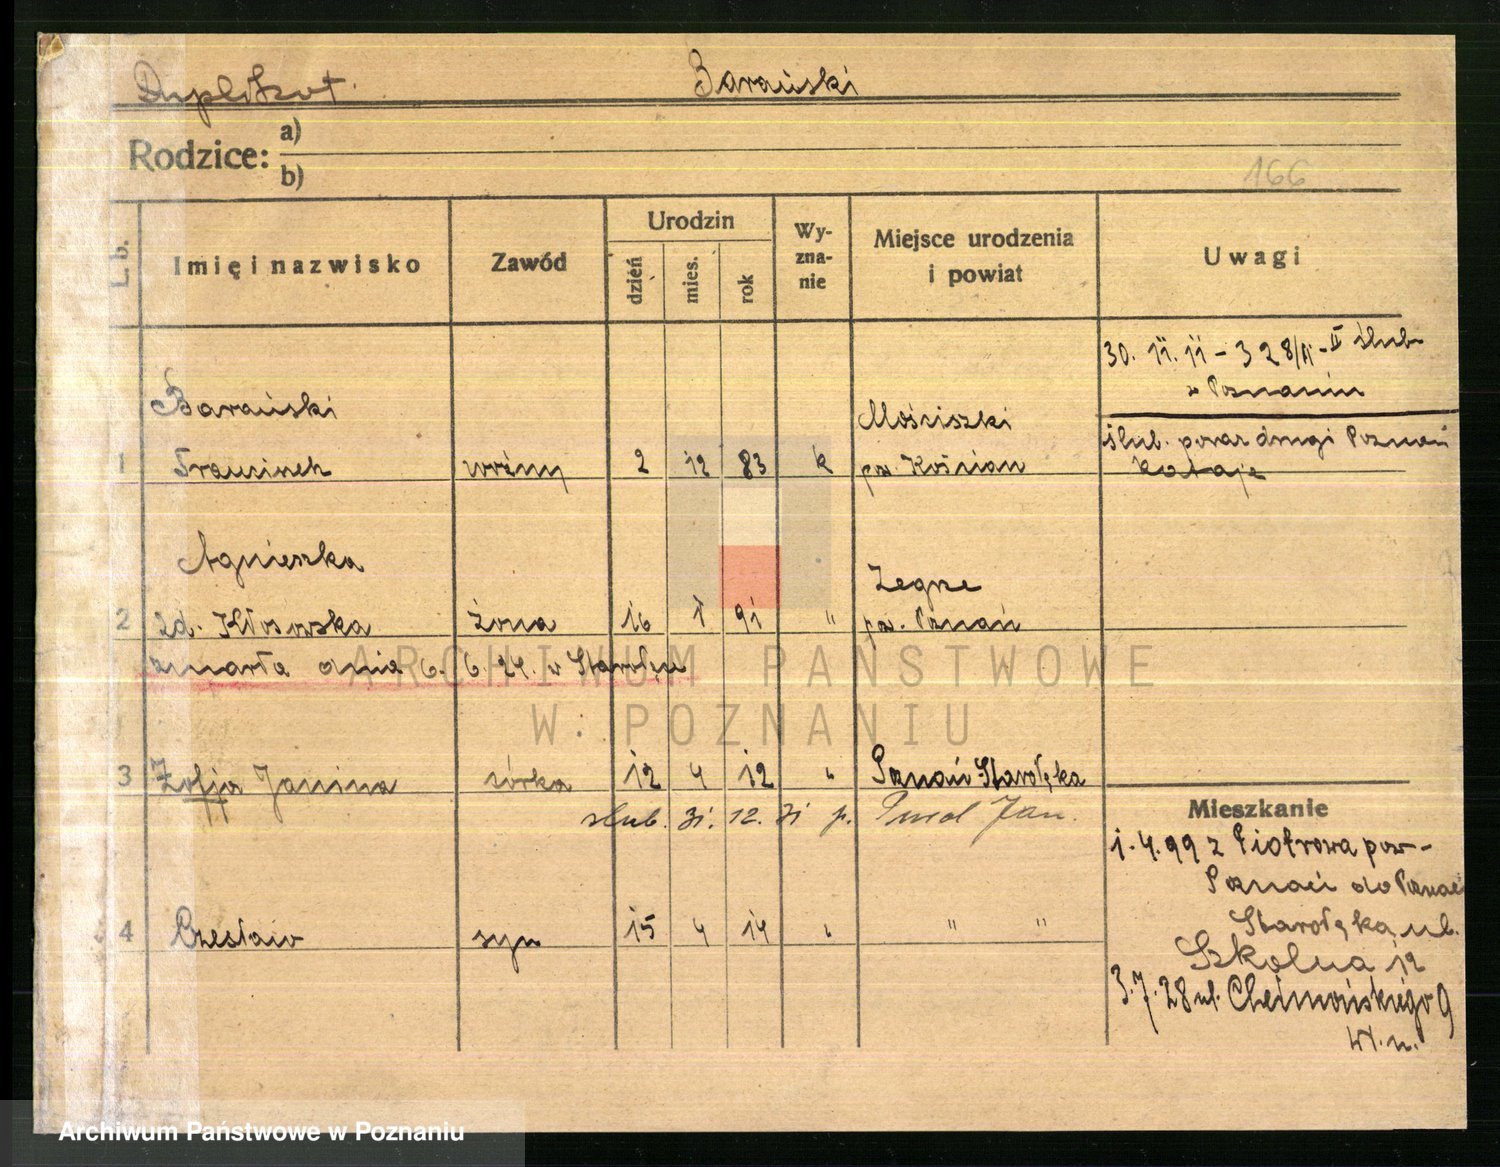 Duplikat. Barański
Rodzice: a)
b)
166
L. b. Imię i nazwisko Zawód Urodzin dzień mies. rok Wy-zna-nie Miejsce urodzenia i powiat Uwagi
30. 11. 11 - 328/11 - II ślub
w Poznaniu
Barański Mościszki
ślub. poraz drugi Poznań
1 Franciszek woźny 2 12 83 k pow. Kościan
Agnieszka Żegrze
2 zd. Kłosowska żona 16 1 91 " pow. Poznań
zmarła dnia 6. 6. 24. w Starołęce
3 Zofja Janina córka 12 4 12 " Poznań Starołęka
ślub. 31. 12. 31 p. Jan.
Mieszkanie
1. 4. 99 z Piotrowa pow-
Poznań do Poznań
Starołęka ul.
4 Czesław syn 15 4 14 " " "
Szkolna 12
3. 7. 28 ul. Chełmońskiego 9
ARCHIWUM PAŃSTWOWE
W POZNANIU
Archiwum Państwowe w Poznaniu